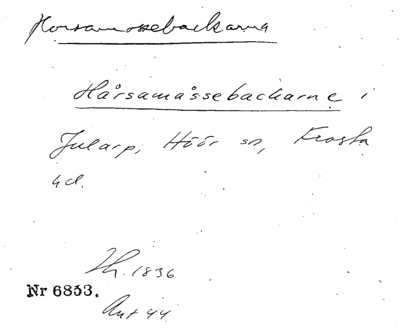 Horsamossebackarna
Hårsamåssebackarne i
Jularp, Höör sn, Frosta
hd.
Lh. 1836
Nr 6853.
Ant 44